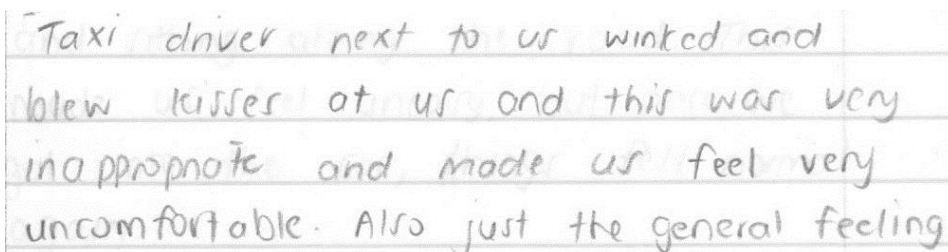 Taxi driver next to us winked and
blew kisses at us and this was very
inappropriate and made us feel very
uncomfortable. Also just the general feeling